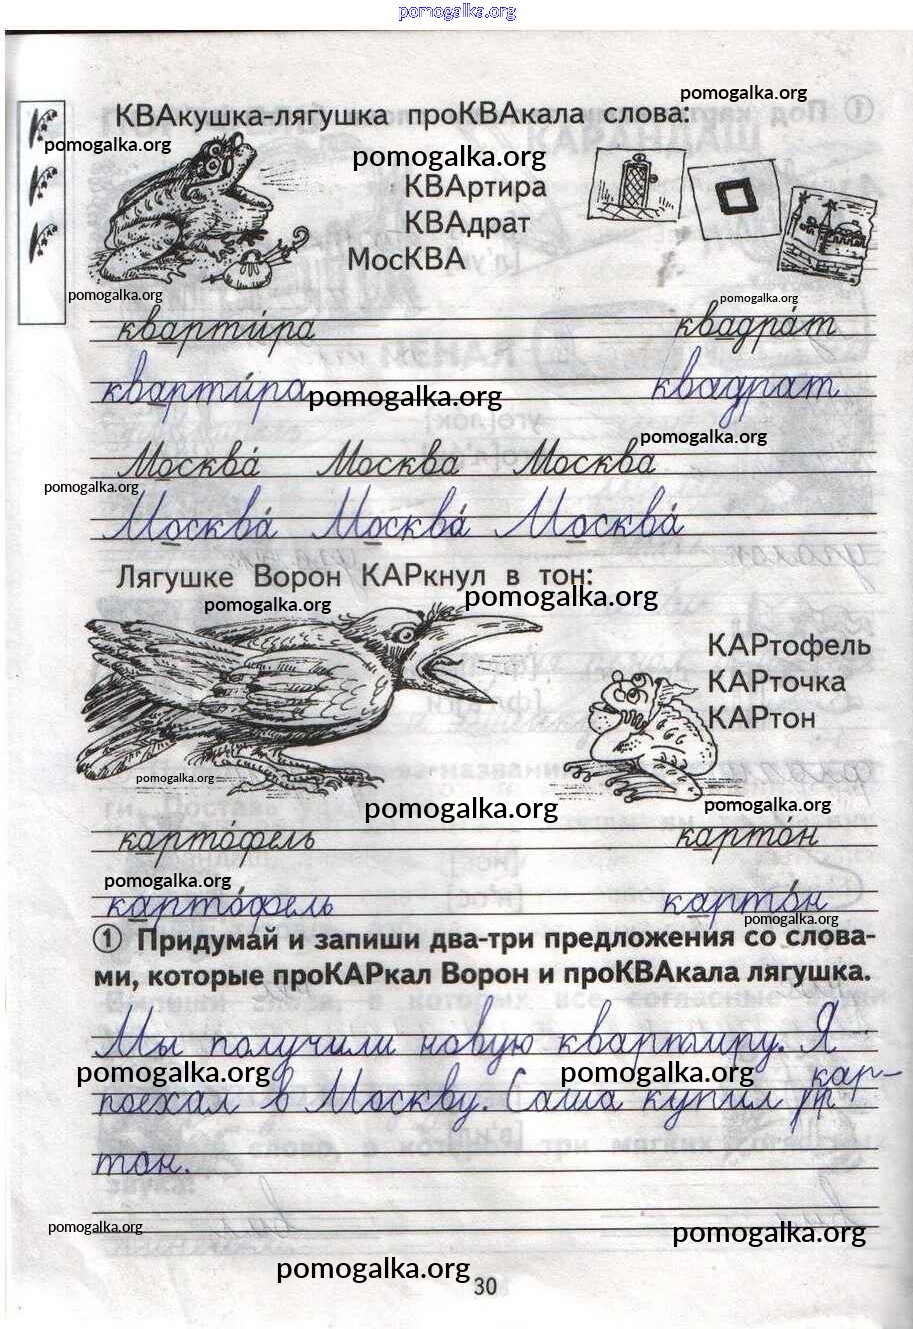 pomogalka.org
pomogalka.org
КВАкушка-лягушка проКВАкала слова:
pomogalka.org
pomogalka.org
КВАртира
КВАдрат
МосКВА
pomogalka.org
pomogalka.org
кварти́ра квадра́т
кварти́ра квадрат
pomogalka.org
pomogalka.org
Москва́ Москва Москва
pomogalka.org
Москва́ Москва́ Москва́
Лягушке Ворон КАРкнул в тон:
pomogalka.org
pomogalka.org
КАРтофель
КАРточка
КАРтон
pomogalka.org
pomogalka.org
pomogalka.org
карто́фель карто́н
pomogalka.org
карто́фель карто́н
pomogalka.org
1 Придумай и запиши два-три предложения со слова-
ми, которые проКАРкал Ворон и проКВАкала лягушка.
Мы получили новую квартиру. Я
pomogalka.org pomogalka.org
поехал в Москву. Саша купил кар-
тон.
pomogalka.org
pomogalka.org
pomogalka.org
30